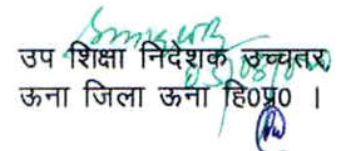 उप शिक्षा निदेशक उच्चतर
ऊना जिला ऊना हि०प्र० ।